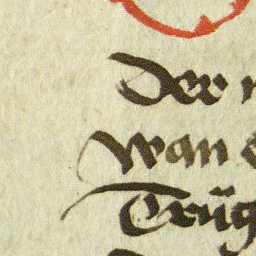 Der
wan
Trüg